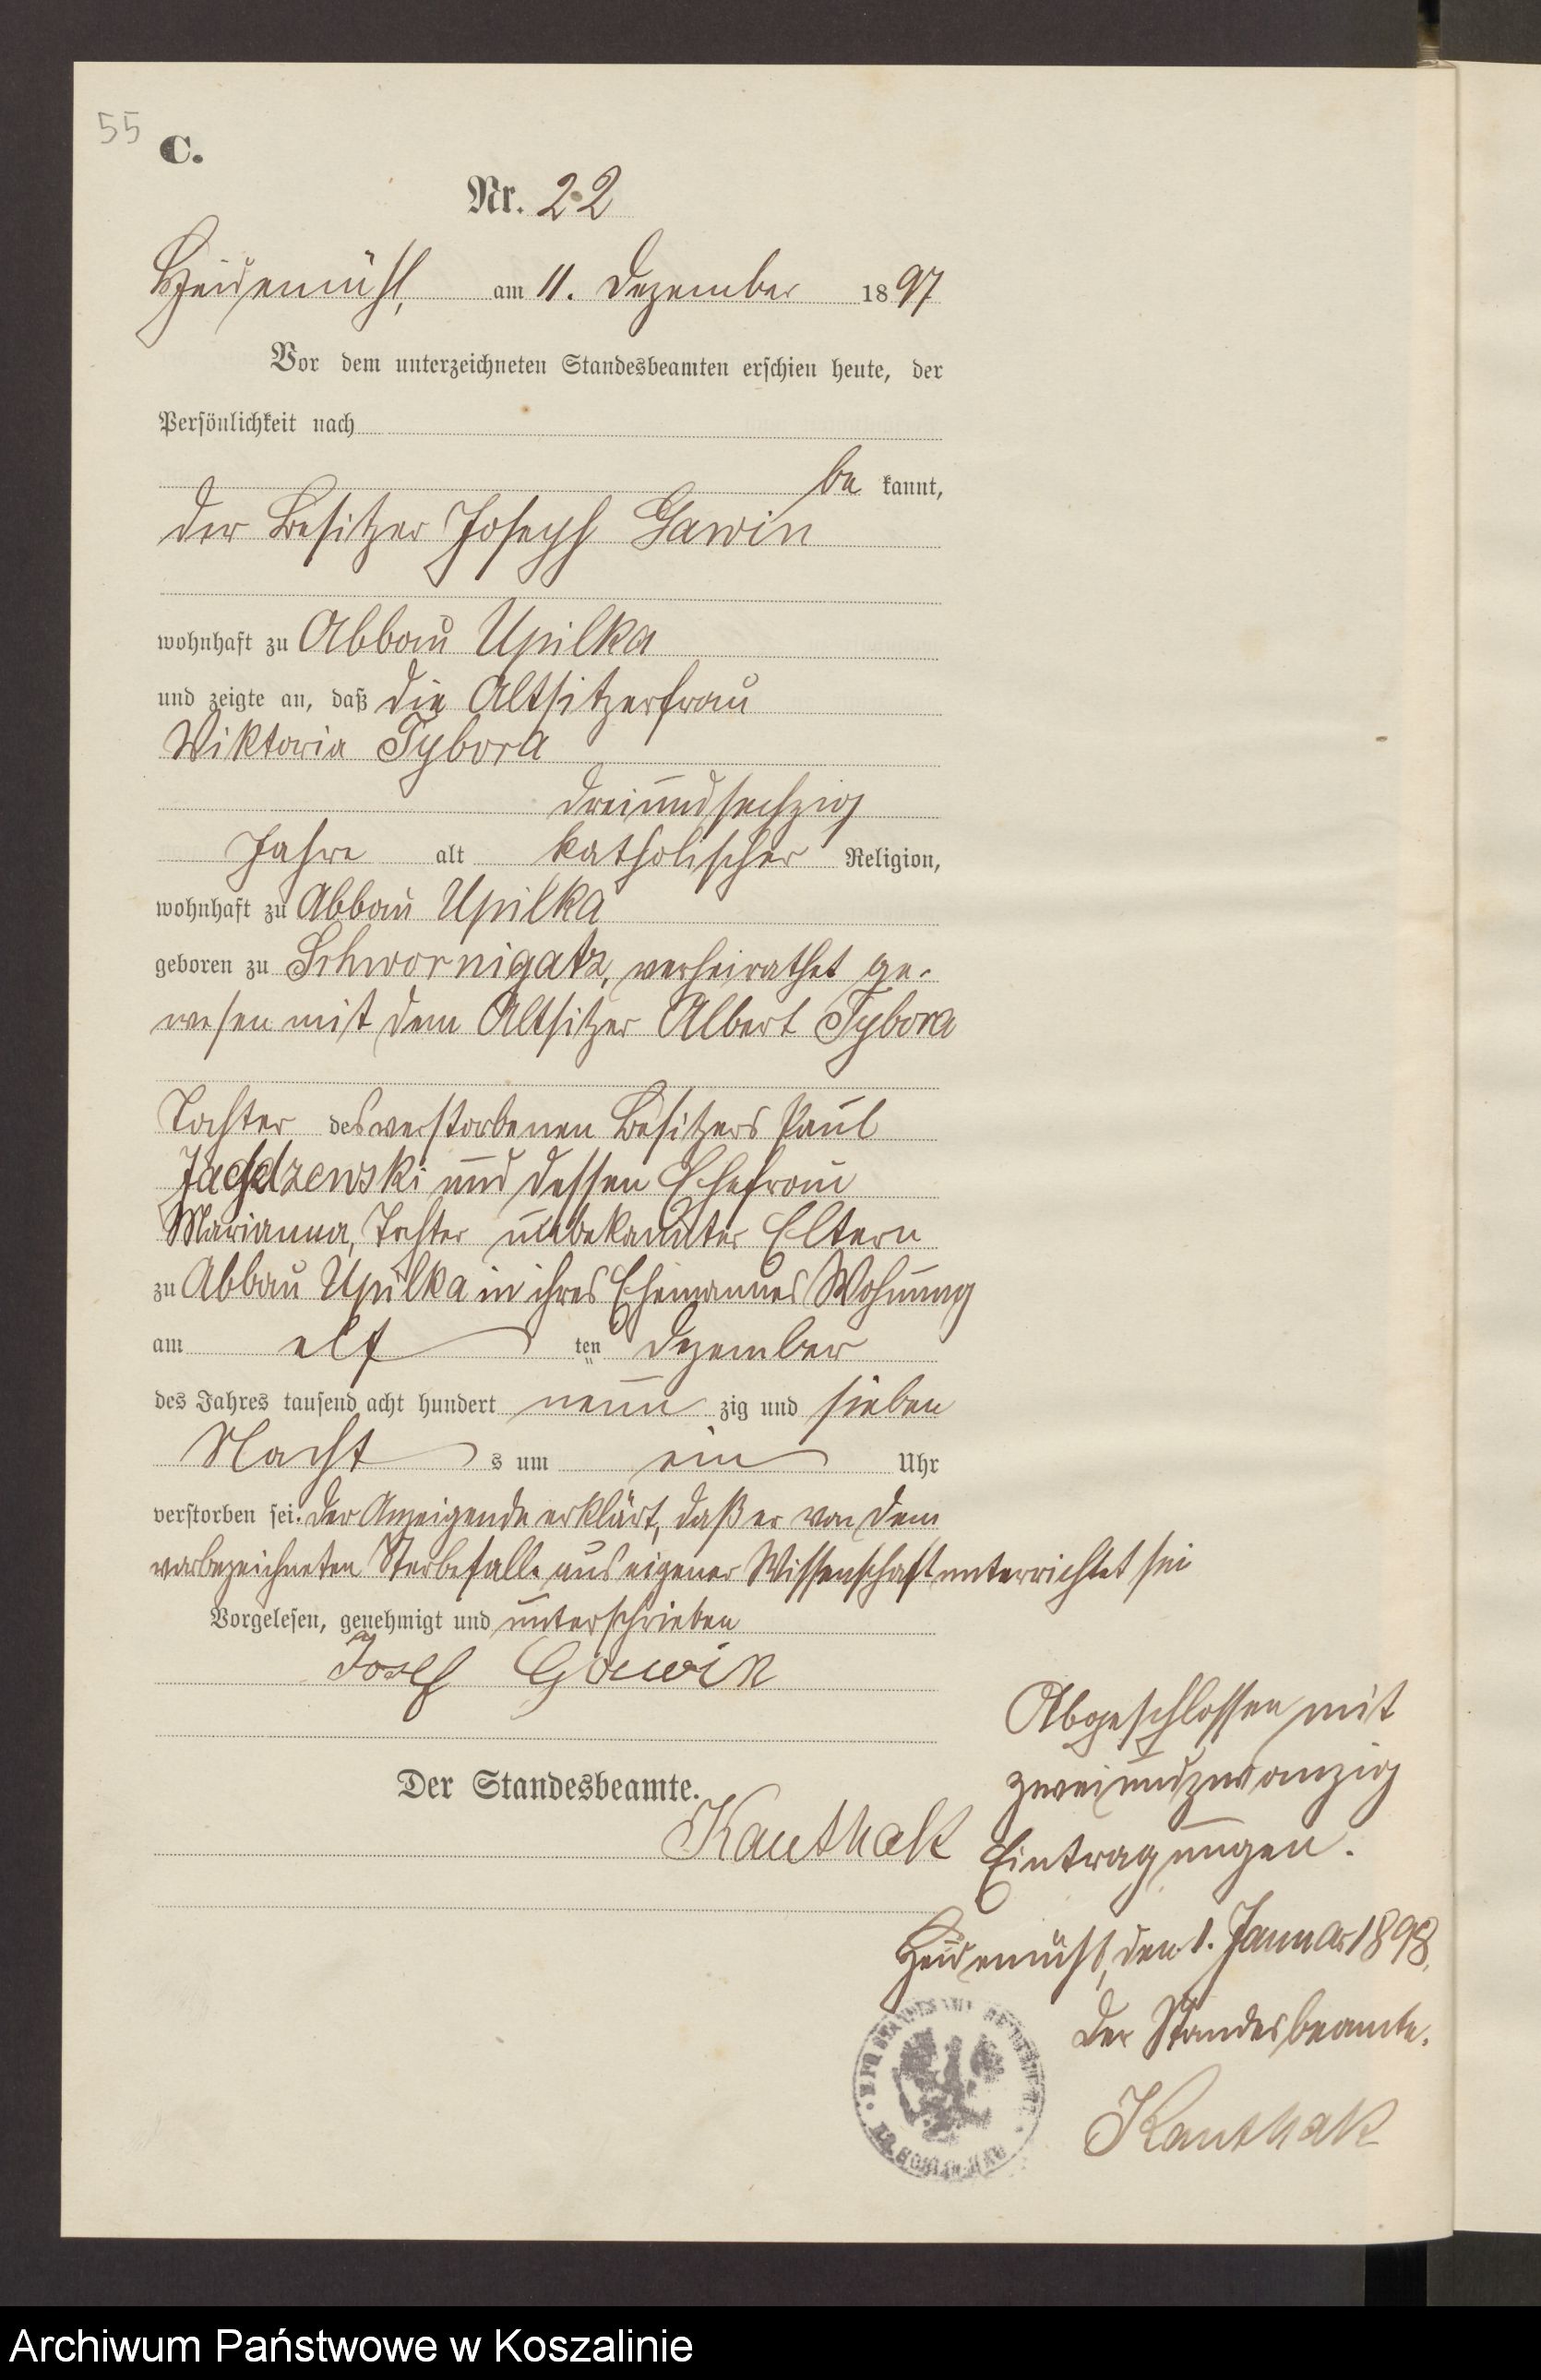 55
C.
Nr. 22
Heidemühl, am 11. Dezember 1897
Vor dem unterzeichneten Standesbeamten erschien heute, der
Persönlichkeit nach
be kannt,
der Besitzer Joseph Gawin
wohnhaft zu Abbau Upilka
und zeigte an, daß die Altsitzerfrau
Wiktoria Tybora
dreiundsechzig
Jahre alt katholischer Religion,
wohnhaft zu Abbau Upilka
geboren zu Schwornigatz, verheirathet ge-
wesen mit dem Altsitzer Albert Tybora
Tochter des verstorbenen Besitzers Paul
und dessen Ehefrau
Marianna, Tochter unbekannter Eltern
zu Abbau Upilka in ihres Ehemannes Wohnung
am elf ten Dezember
des Jahres tausend acht hundert neun zig und sieben
Nacht s um ein Uhr
verstorben sei. Der Anzeigende erklärt, daß er von dem
vorbezeichneten Sterbefalle aus eigener Wissenschaft unterrichtet sei
Vorgelesen, genehmigt und unterschrieben
Josef Gawin
Der Standesbeamte.
Kauthak
Abgeschlossen mit
zweiundzwanzig
Eintragungen.
Heidemühl, den 1. Januar 1898.
Der Standesbeamte.
Kauthak
Archiwum Państwowe w Koszalinie